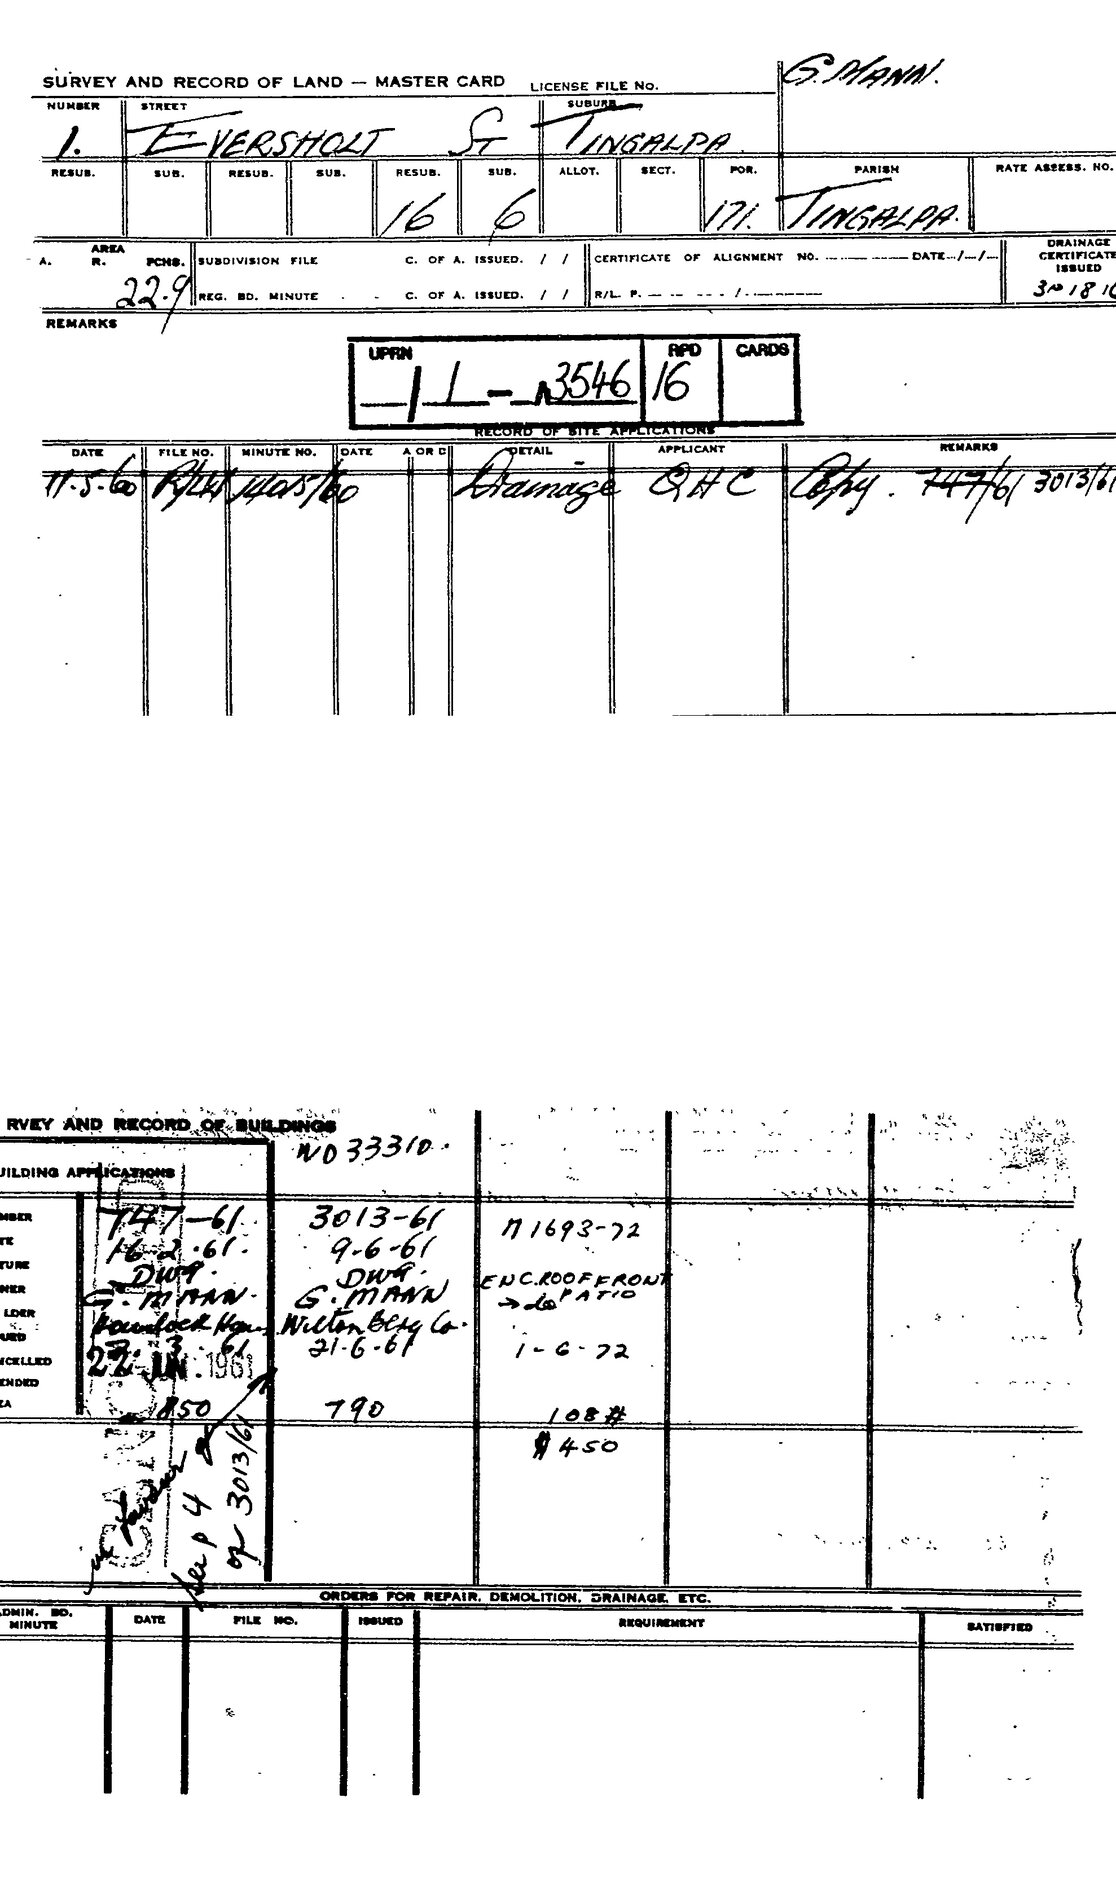 G. MANN.
SURVEY AND RECORD OF LAND — MASTER CARD LICENSE FILE No.
NUMBER STREET SUBURB
1. EVERSHOLT ST TINGALPA.
RESUB. SUB. RESUB. SUB. RESUB. SUB. ALLOT. SECT. POR. PARISH RATE ASSESS. NO.
16 6 171. TINGALPA.
AREA
A. R. PCHS.
22.9
SUBDIVISION FILE C. OF A. ISSUED. / /
REG. BD. MINUTE C. OF A. ISSUED. / /
CERTIFICATE OF ALIGNMENT NO. DATE / /
R/L. P. /
DRAINAGE
CERTIFICATE
ISSUED
REMARKS
UPRN RPD CARDS
/ 1 - 3546 16
RECORD OF SITE APPLICATIONS
DATE FILE NO. MINUTE NO. DATE A OR D DETAIL APPLICANT REMARKS
11-5-60 Drainage QHC Copy. 747/61 3013/61
RVEY AND RECORD OF BUILDINGS
ND 33310.
UILDING APPLICATIONS
MBER 747-61. 3013-61 1693-72
TE 16-2-61. 9-6-61
TURE DWG. DWG. ENC. ROOF FRONT PATIO
NER G. MANN. G. MANN
LDER Wilton Bldg Co.
UED 3. 61 21-6-61 1-6-72
NCELLED 22 JUN. 1961
ENDED
EA 850 790 108
$450
See p 4
of 3013/61
ORDERS FOR REPAIR, DEMOLITION, DRAINAGE, ETC.
DMIN. BD. MINUTE DATE FILE NO. ISSUED REQUIREMENT SATISFIED